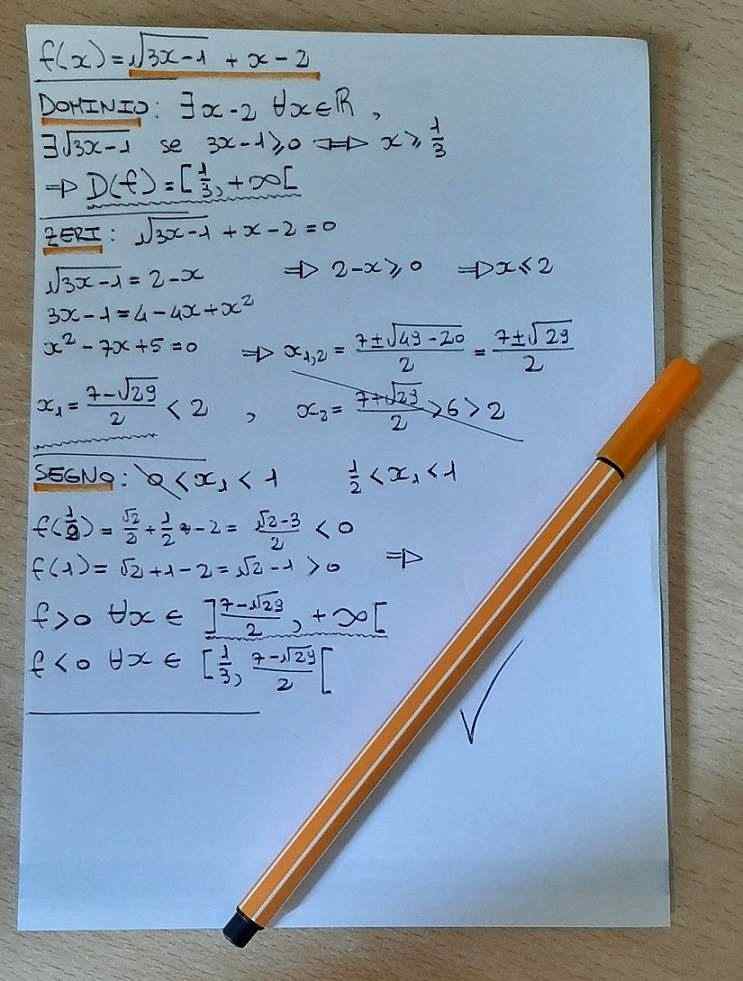 f(x) = √(3x-1) + x - 2
DOMINIO: ∃ x-2 ∀x∈ℝ,
∃ √(3x-1) se 3x-1 ≥ 0 ⟺ x ≥ 1/3
⇒ D(f) = [1/3, +∞[
ZERI: √(3x-1) + x - 2 = 0
√(3x-1) = 2-x ⇒ 2-x ≥ 0 ⇒ x ≤ 2
3x-1 = 4-4x+x²
x² - 7x + 5 = 0 ⇒ x₁,₂ = (7±√(49-20))/2 = (7±√29)/2
x₁ = (7-√29)/2 < 2 , x₂ = (7+√29)/2 > 6 > 2
SEGNO: 0 < x₁ < 1 1/2 < x₁ < 1
f(1/2) = √2/2 + 1/2 - 2 = (√2-3)/2 < 0
f(1) = √2 + 1 - 2 = √2 - 1 > 0 ⇒
f > 0 ∀x ∈ ](7-√29)/2, +∞[
f < 0 ∀x ∈ [1/3, (7-√29)/2[